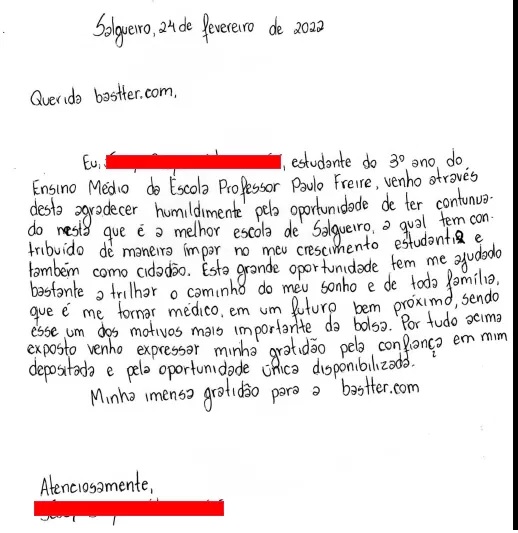 Salgueiro, 24 de fevereiro de 2022
Querida bastter.com,
Eu, , estudante do 3º ano do
Ensino Médio da Escola Professor Paulo Freire, venho através
desta agradecer humildimente pela oportunidade de ter contunua-
do nesta que é a melhor escola de Salgueiro, a qual tem con-
tribuído de maneira ímpar no meu crescimento estudantil e
também como cidadão. Esta grande oportunidade tem me ajudado
bastante a trilhar o caminho do meu sonho e de toda família,
que é me tornar médico, em um futuro bem próximo, sendo
esse um dos motivos mais importante da bolsa. Por tudo acima
exposto venho expressar minha gratidão pela confiança em mim
depositada e pela oportunidade única disponibilizada.
Minha imensa gratidão para a bastter.com
Atenciosamente,